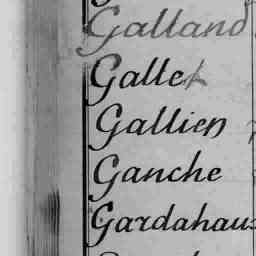 Galland
Gallet
Gallien
Ganche
Gardahaus